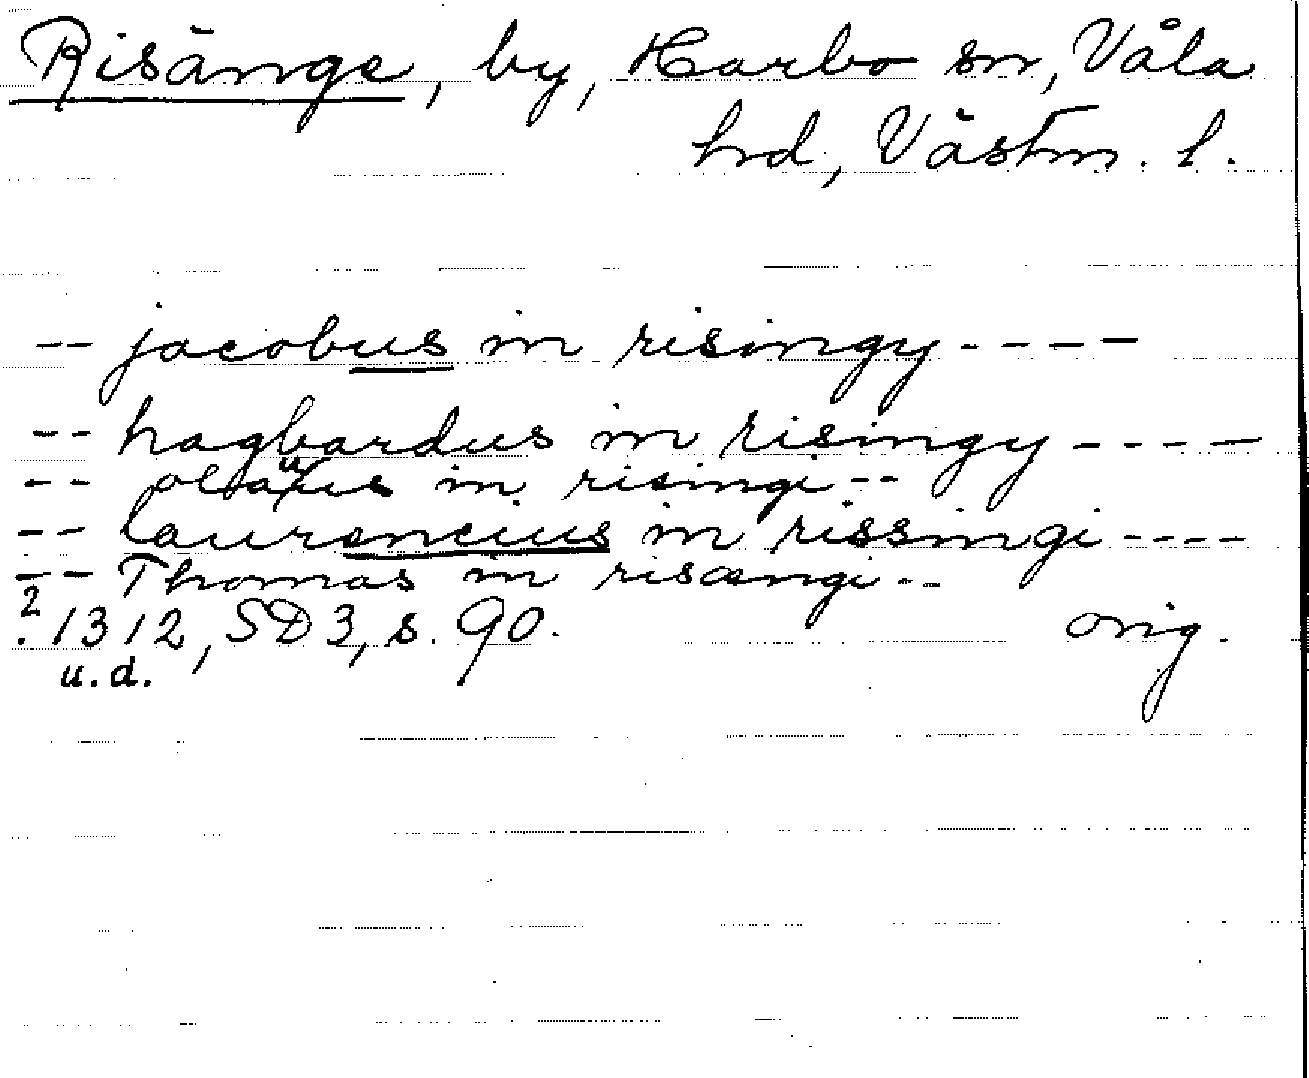 Risänge, by, Harbo sn, Våla
hrd, Västm. l.
-- jacobus in risingy ----
-- hagbardus in risingy ----
-- olauus in risingi --
-- laurencius in rissingi ----
-- Thomas in risængi --
? 1312, SD 3, s. 90. orig.
u.d.